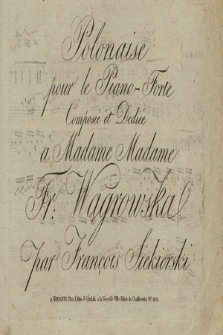 Polonaise
pour le Piano-Forte
Composée et Dediée
a Madame Madame
Fr: Wągrowska
par François Siekierski
A VARSOVIE Chez